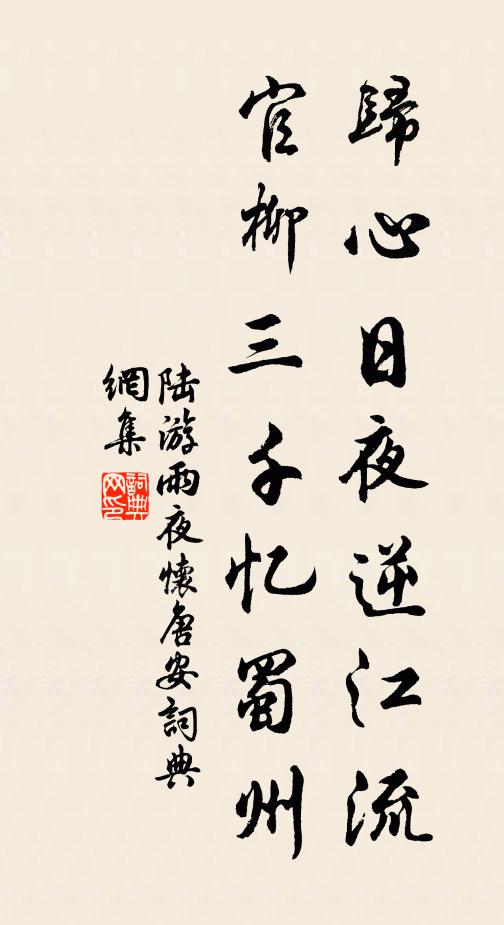 歸心日夜逆江流
官柳三千忆蜀州
陆游雨夜懷唐安詞典
網集
詞典
网印